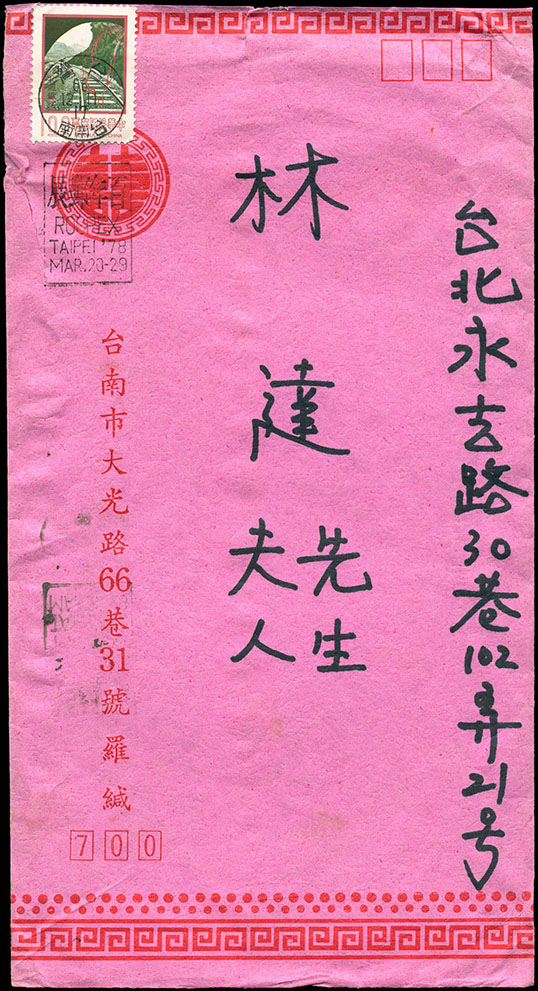 台北永吉路30巷102弄21号
林達 先生
夫人
百年郵展
ROCPEX
TAIPEI '78
MAR.20-29
台南
台南市大光路66巷31號羅緘
700